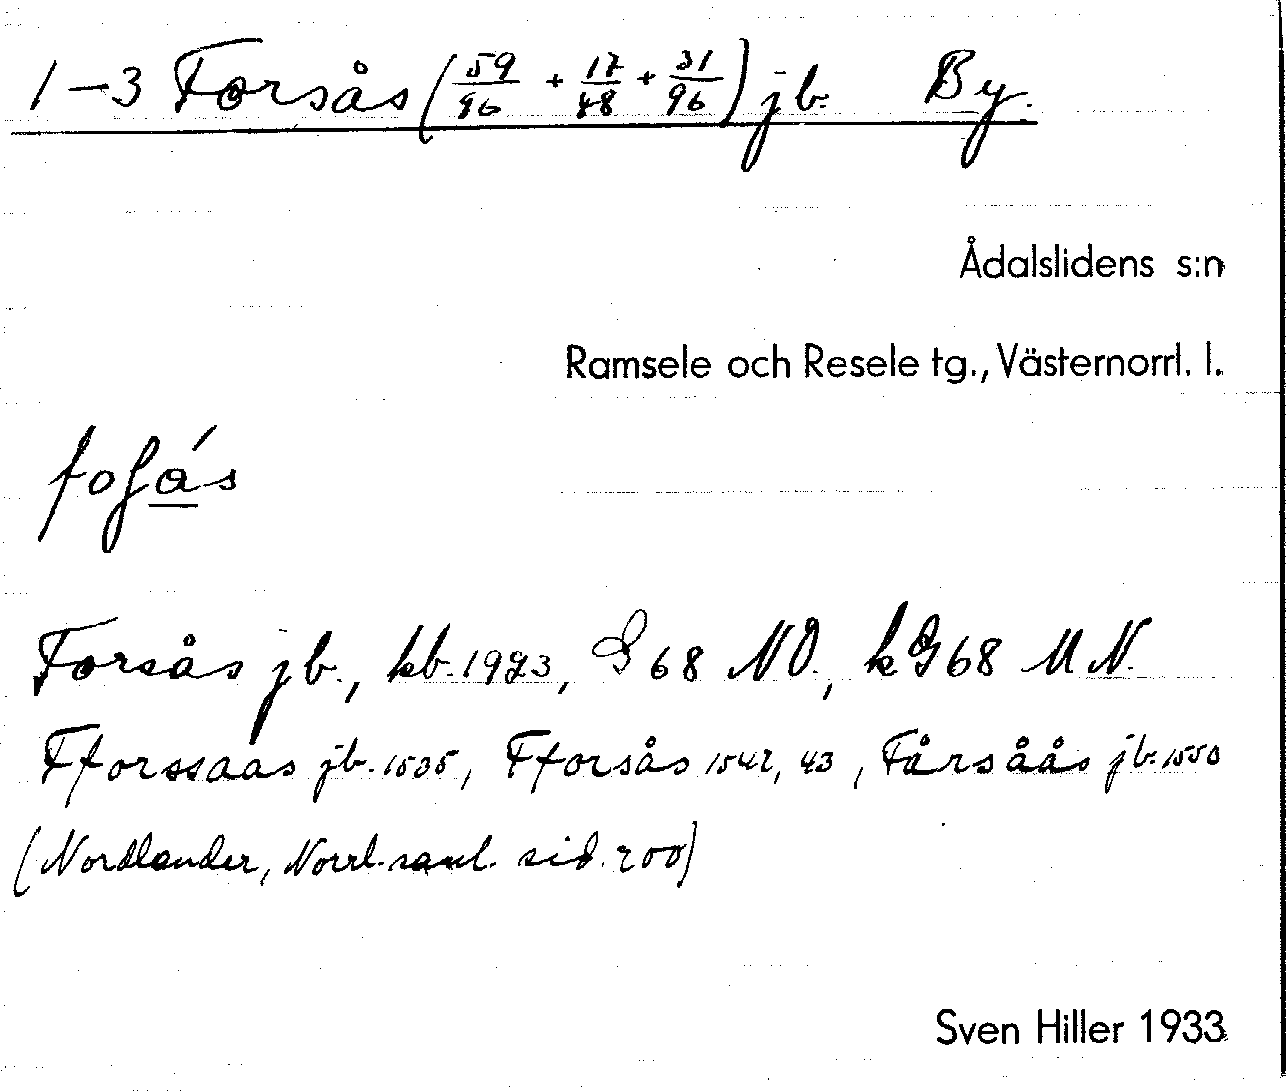 1–3 Forsås (59/96 + 17/48 + 31/96) jb. By.
Ådalslidens s:n
Ramsele och Resele tg., Västernorrl. l.
Forsås jb., kb. 1923, G 68 NO., kG 68 M N.
Fforssaas jb. 1535, Fforsås 1542, 43, Fårsåås jb. 1550
(Nordlander, Norrl. saml. sid. 200)
Sven Hiller 1933